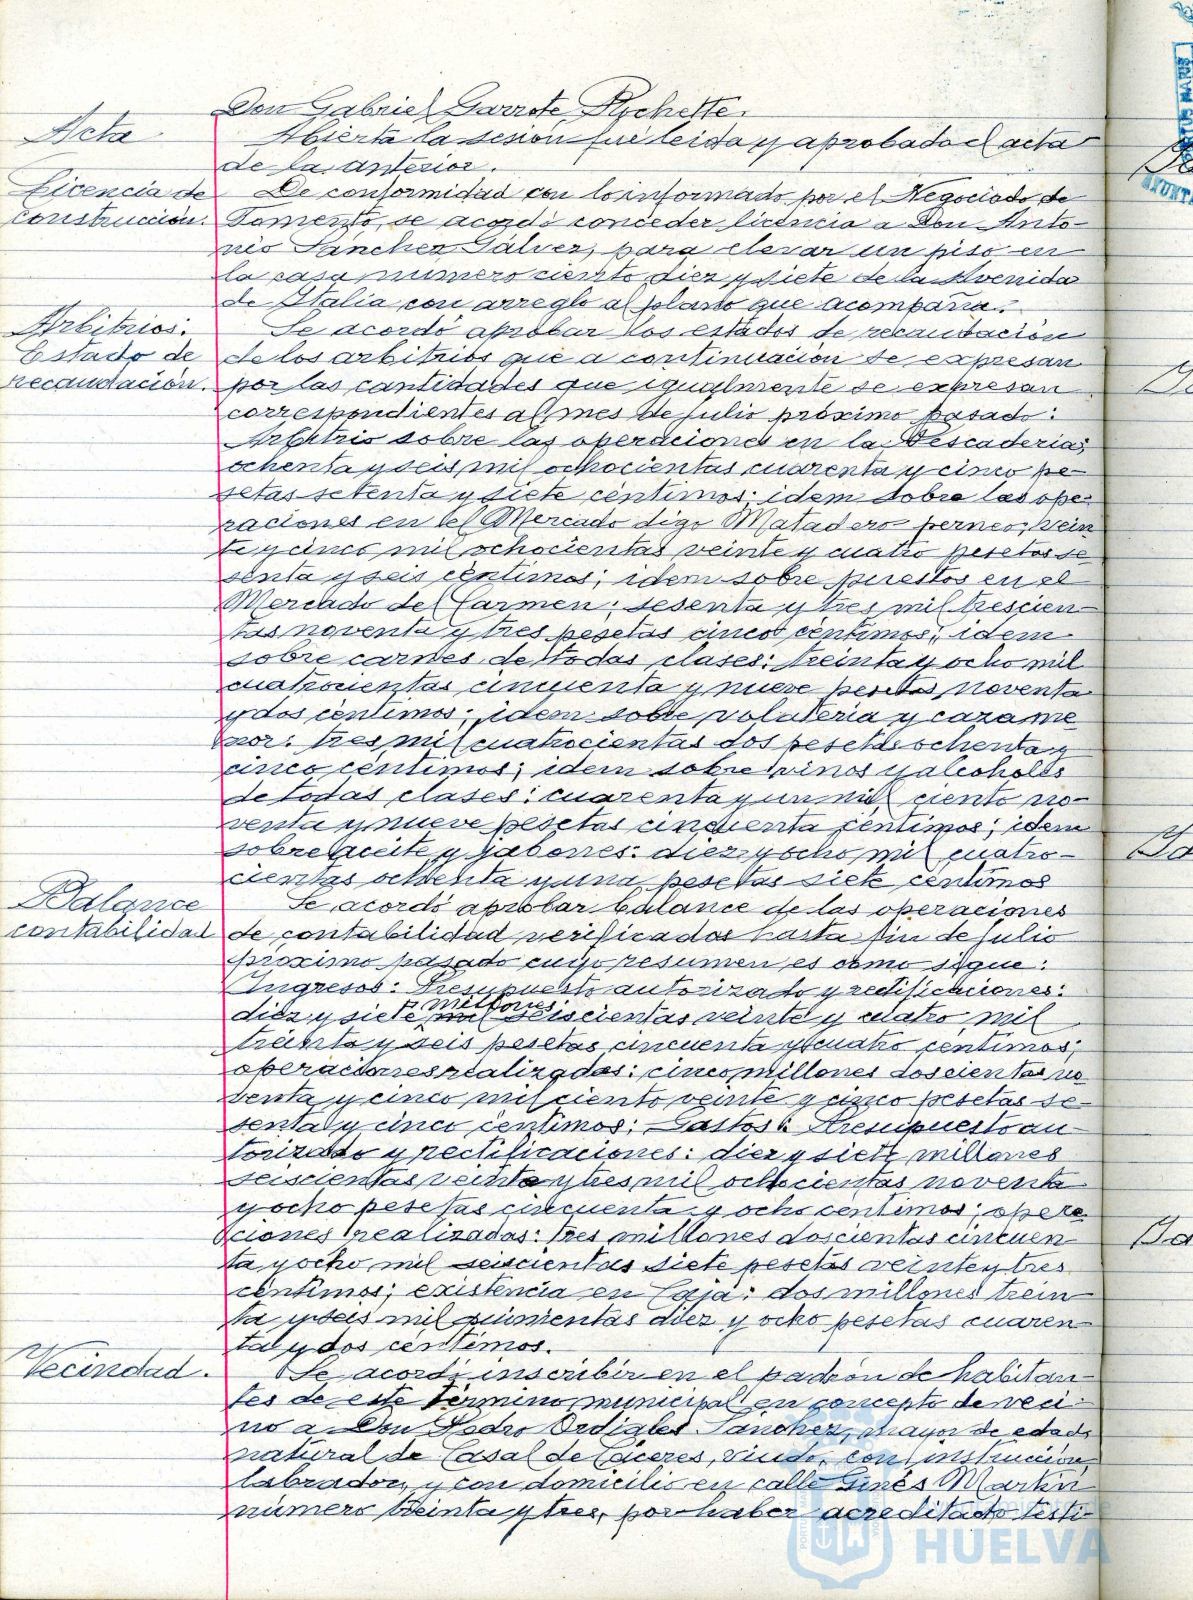 Don Gabriel Garrote Rochette.
Acta
Abierta la sesión fué leida y aprobada el acta
de la anterior.
Licencia de
construcción.
De conformidad con lo informado por el Negociado de
Fomento, se acordó conceder licencia a Don Anto-
nio Sánchez Gálvez, para elevar un piso en
la casa número ciento diez y siete de la Avenida
de Italia con arreglo al plano que acompaña.
Arbitrios.
Estado de
recaudación.
Se acordó aprobar los estados de recaudación
de los arbitrios que a continuación se expresan
por las cantidades que igualmente se expresan
correspondientes al mes de julio próximo pasado:
Arbitrio sobre las operaciones en la Pescaderia;
ochenta y seis mil ochocientas cuarenta y cinco pe-
setas setenta y siete céntimos; idem sobre las ope-
raciones en el Mercado digo Matadero perneo; vein
te y cinco mil ochocientas veinte y cuatro pesetas se
senta y seis céntimos; idem sobre puestos en el
Mercado del Carmen; sesenta y tres mil trescien-
tas noventa y tres pesetas cinco céntimos; idem
sobre carnes de todas clases: treinta y ocho mil
cuatrocientas cincuenta y nueve pesetas noventa
y dos céntimos; idem sobre volateria y caza me
nor: tres mil cuatrocientas dos pesetas ochenta y
cinco céntimos; idem sobre vinos y alcoholes
de todas clases: cuarenta y un mil ciento no-
venta y nueve pesetas cincuenta céntimos; idem
sobre aceite y jabones: diez y ocho mil cuatro-
cientas ochenta y una pesetas siete céntimos
Balance
contabilidad
Se acordó aprobar balance de las operaciones
de contabilidad verificadas hasta fin de julio
próximo pasado cuyo resumen es como sigue:
Ingresos: Presupuesto autorizado y rectificaciones:
millones
diez y siete mil seiscientas veinte y cuatro mil
treinta y seis pesetas cincuenta y cuatro céntimos;
operaciones realizadas: cinco millones doscientas no
venta y cinco mil ciento veinte y cinco pesetas se-
senta y cinco céntimos; Gastos: Presupuesto au-
torizado y rectificaciones: diez y siete millones
seiscientas veinte y tres mil ochocientas noventa
y ocho pesetas cincuenta y ocho céntimos; opera
ciones realizadas: tres millones doscientas cincuen
ta y ocho mil seiscientas siete pesetas veinte y tres
céntimos; existencia en Caja: dos millones trein
ta y seis mil quinientas diez y ocho pesetas cuaren
ta y dos céntimos.
Vecindad.
Se acordó inscribir en el padrón de habitan-
tes de este término municipal en concepto de veci
no a Don Pedro Ordiales Sánchez, mayor de edad,
natural de Casal de Cáceres, viudo, con instrucción,
labrador, y con domicilio en calle Ginés Martín
número treinta y tres, por haber acreditado testi-
HUELVA